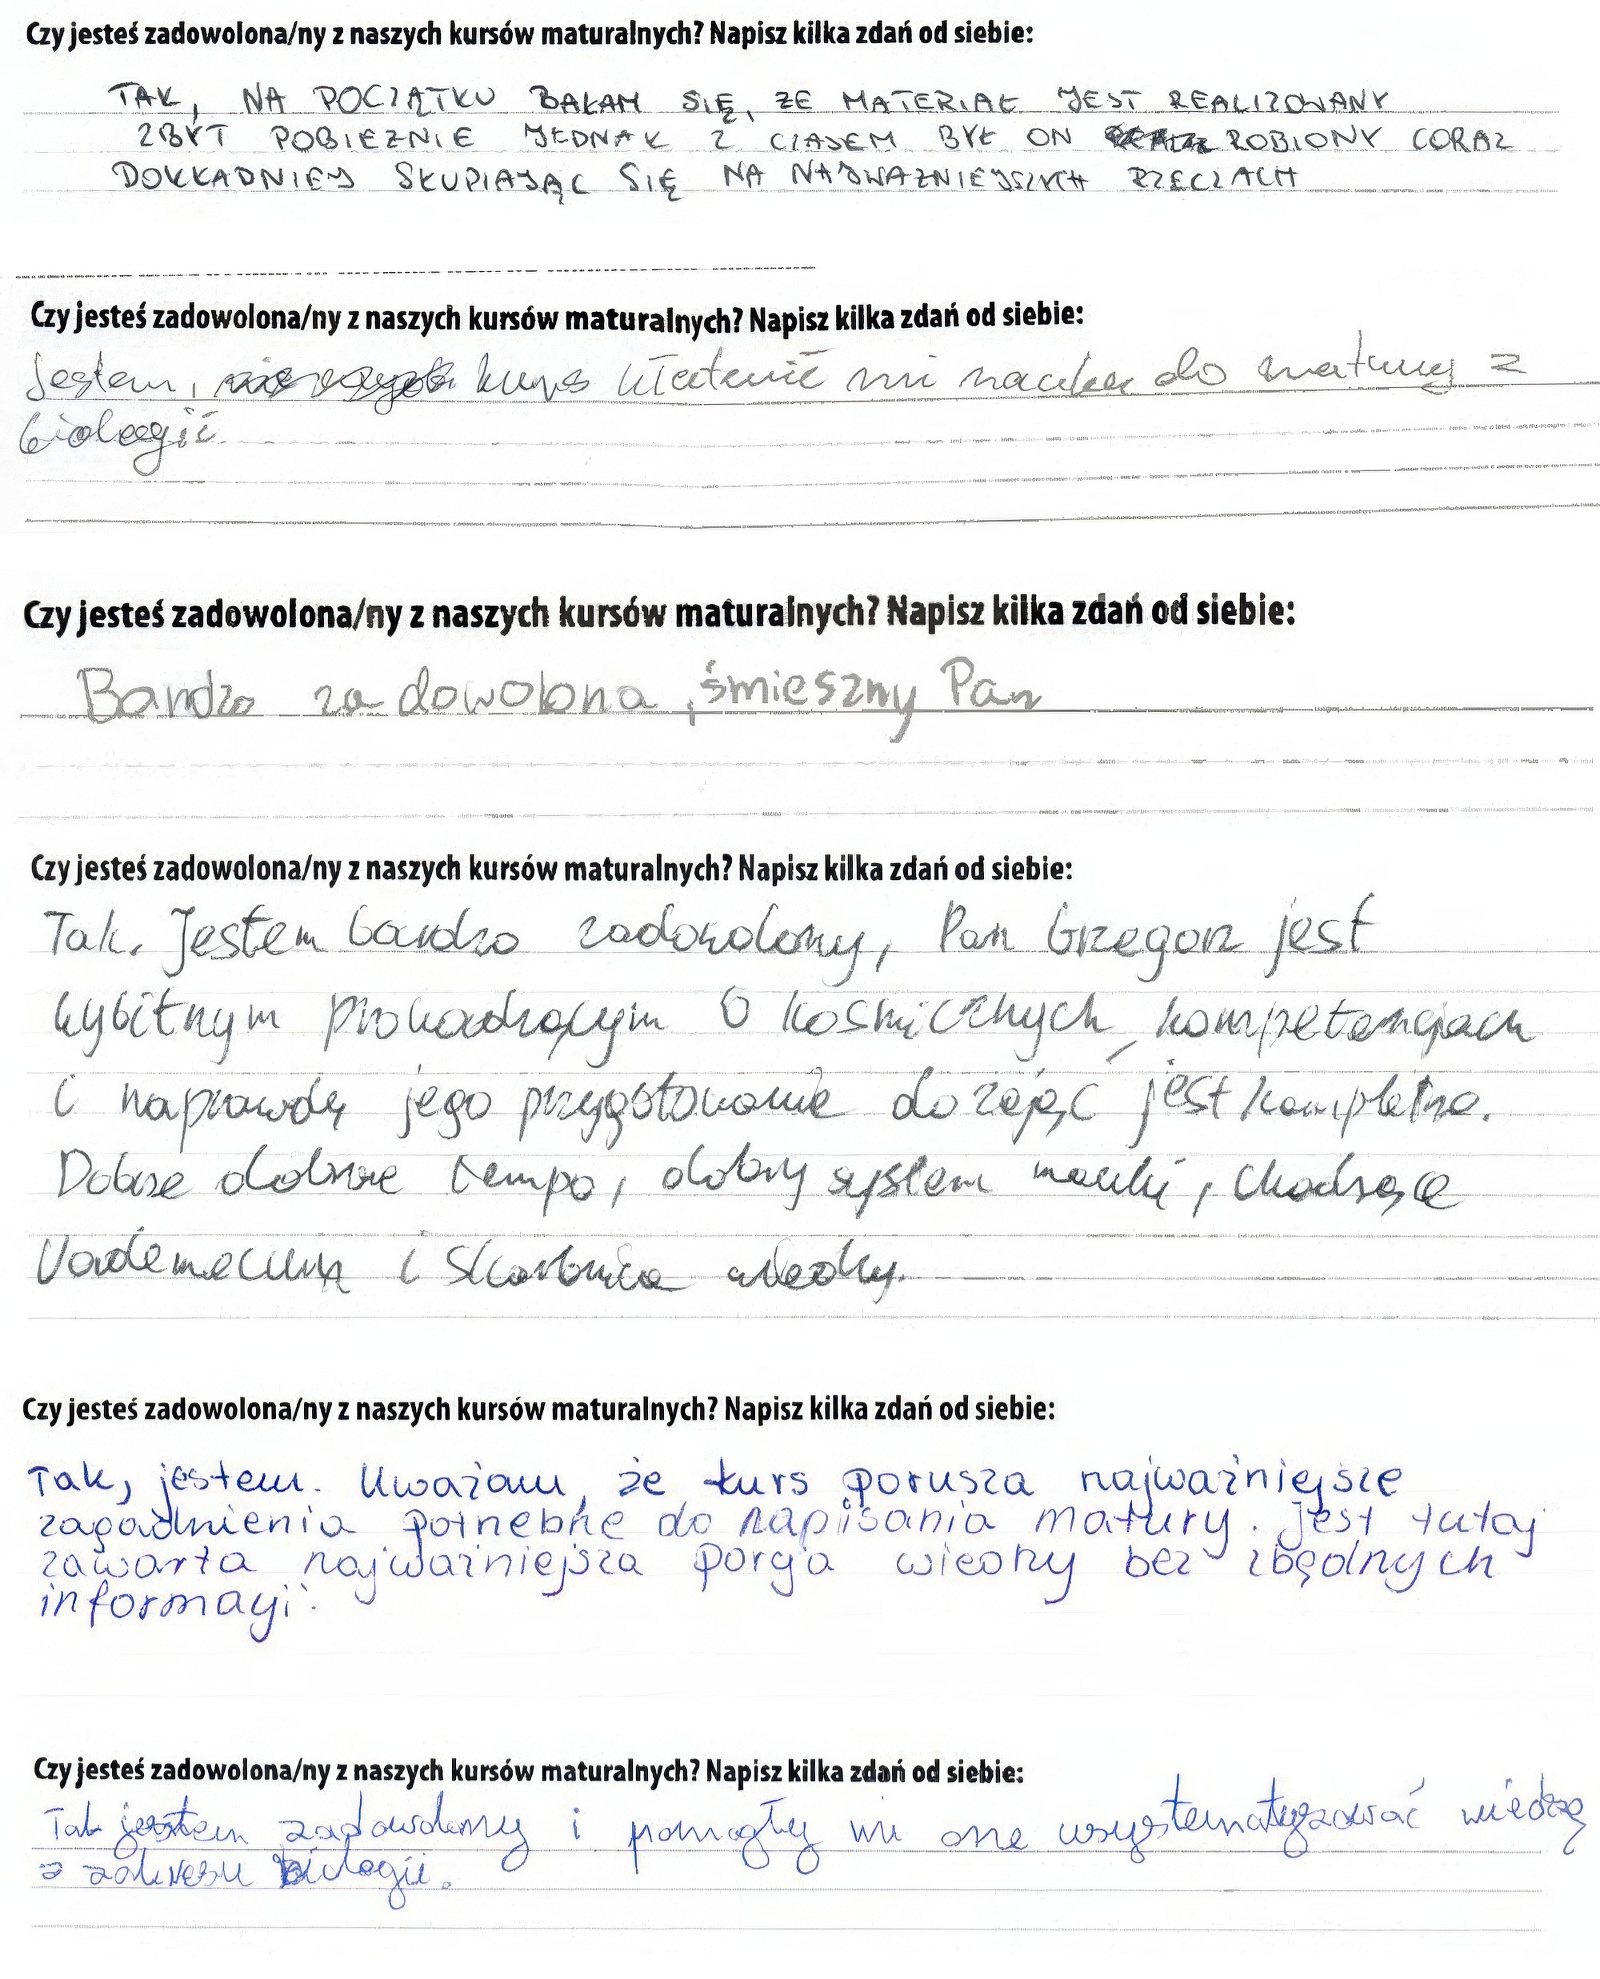 Czy jesteś zadowolona/ny z naszych kursów maturalnych? Napisz kilka zdań od siebie:
TAK, NA POCZĄTKU BAŁAM SIĘ, ŻE MATERIAŁ JEST REALIZOWANY
ZBYT POBIEŻNIE JEDNAK Z CZASEM BYŁ ON ROBIONY CORAZ
DOKŁADNIEJ SKUPIAJĄC SIĘ NA NAJWAŻNIEJSZYCH RZECZACH
Czy jesteś zadowolona/ny z naszych kursów maturalnych? Napisz kilka zdań od siebie:
Jestem, kurs ułatwił mi naukę do matury z
biologii
Czy jesteś zadowolona/ny z naszych kursów maturalnych? Napisz kilka zdań od siebie:
Bardzo zadowolona, śmieszny Pan
Czy jesteś zadowolona/ny z naszych kursów maturalnych? Napisz kilka zdań od siebie:
Tak. Jestem bardzo zadowolony, Pan Grzegorz jest
wybitnym prowadzącym o kosmicznych kompetencjach
i naprawdę jego przygotowanie do zajęć jest kompletne.
Dobrze dobrane tempo, dobry system nauki, chodzące
Vademecum i skarbnica wiedzy.
Czy jesteś zadowolona/ny z naszych kursów maturalnych? Napisz kilka zdań od siebie:
Tak, jestem. Uważam, że kurs porusza najważniejsze
zagadnienia potrzebne do napisania matury. Jest tutaj
zawarta najważniejsza porcja wiedzy bez zbędnych
informacji.
Czy jesteś zadowolona/ny z naszych kursów maturalnych? Napisz kilka zdań od siebie:
Tak jestem zadowolony i pomogły mi one usystematyzować wiedzę
z zakresu biologii.